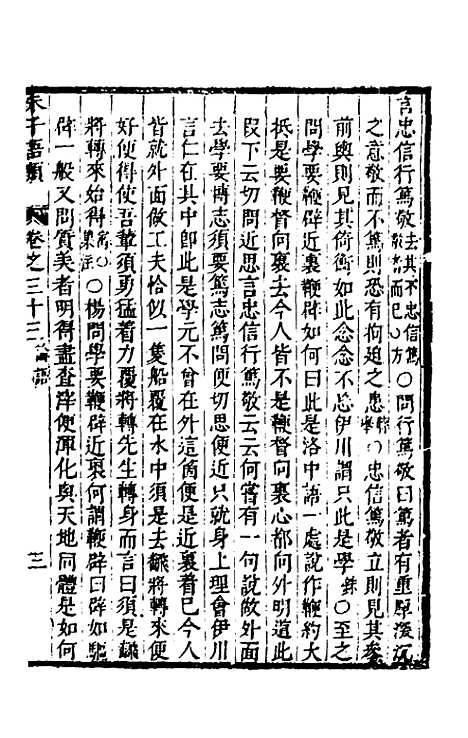 言忠信行篤敬去其不忠信篤敬者而已方○問行篤敬曰篤者有重厚深沉
之意敬而不篤則恐有拘迫之患時舉○忠信篤敬立則見其參
前輿則見其倚衡如此念念不忘伊川謂只此是學銖○至之
問學要鞭辟近裏鞭辟如何曰此是洛中語一處說作鞭約大
抵是要鞭督向裏去今人皆不是鞭督向裏心都向外明道此
段下云切問近思言忠信行篤敬云云何嘗有一句說做外面
去學要博志須要篤志篤問便切思便近只就身上理會伊川
言仁在其中即此是學元不曾在外這箇便是近裏着己今人
皆就外面做工夫恰似一隻船覆在水中須是去飜將轉來便
好便得使吾輩須勇猛着力覆將轉先生轉身而言曰須是飜
將轉來始得寓集註○楊問學要鞭辟近裏何謂鞭辟曰辟如驅
辟一般又問質美者明得盡查滓便渾化與天地同體是如何
朱子語類 卷之三十三 論語 三